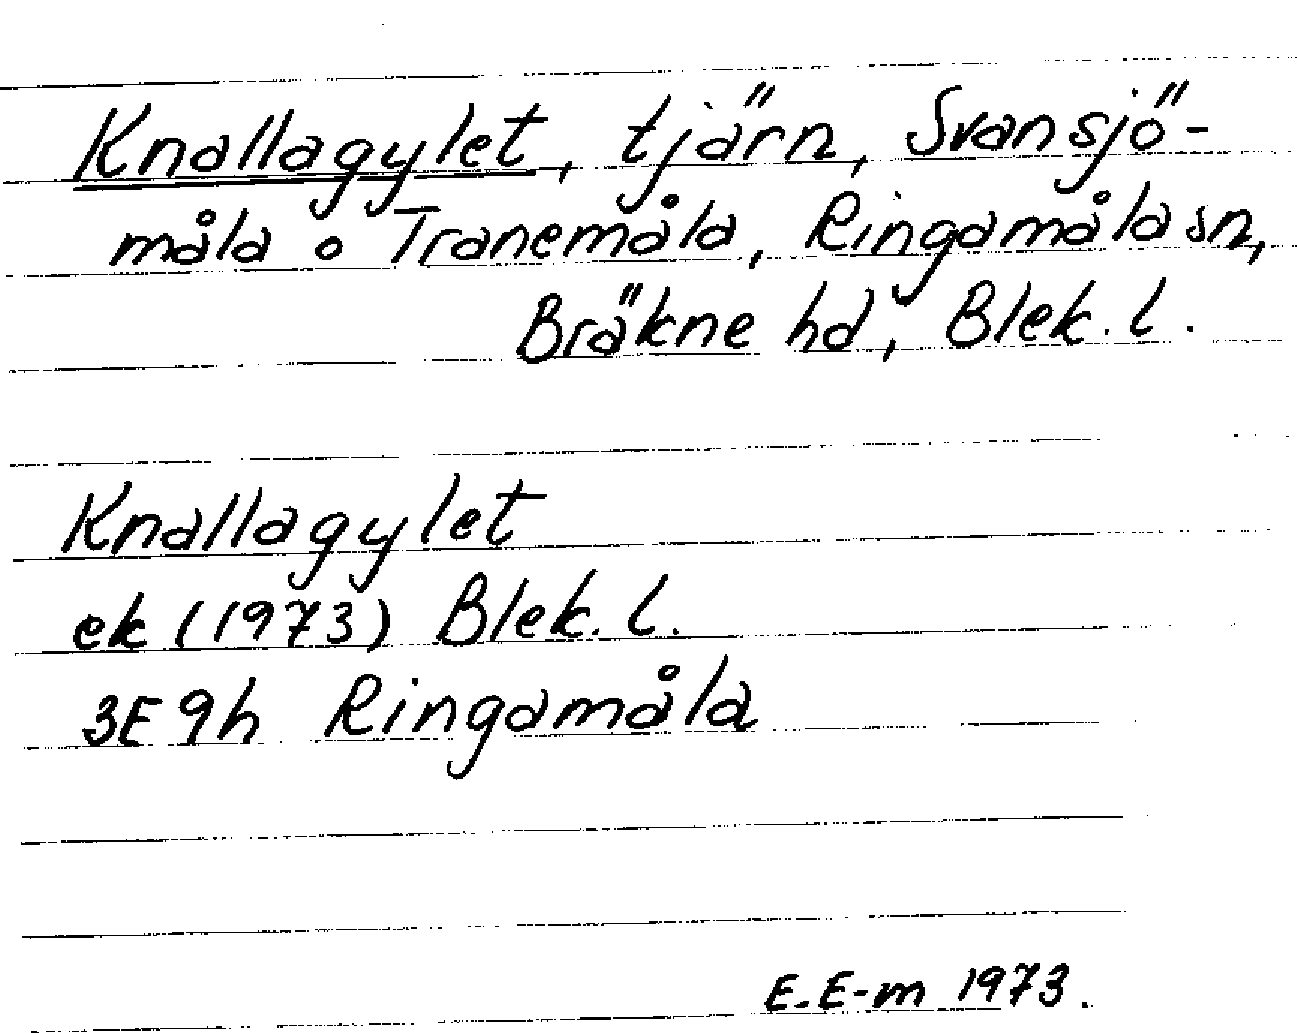 Knallagylet, tjärn, Svansjö-
måla o Tranemåla, Ringamåla sn,
Bräkne hd, Blek. l.
Knallagylet
ek (1973) Blek. l.
3E 9h Ringamåla
E. E-m 1973.